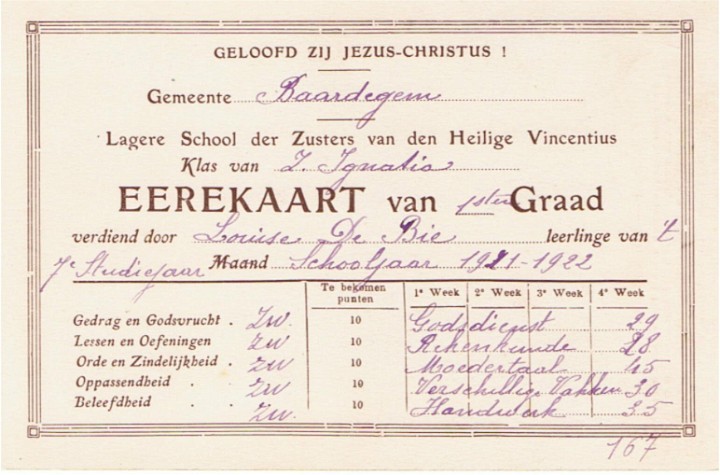 GELOOFD ZIJ JEZUS-CHRISTUS !
Gemeente Baardegem
Lagere School der Zusters van den Heilige Vincentius
Klas van Z. Ignatia
EEREKAART van 1sten Graad
verdiend door Louise De Bie leerlinge van 't
7e Studiejaar Maand Schooljaar 1921-1922
Te bekomen punten 1e Week 2e Week 3e Week 4e Week
Gedrag en Godsvrucht . zw. 10 Godsdienst 29
Lessen en Oefeningen zw 10 Rekenkunde 28
Orde en Zindelijkheid . zw 10 Moedertaal 45
Oppassendheid . zw 10 Verschillige Vakken 30
Beleefdheid . zw. 10 Handwerk 35
167